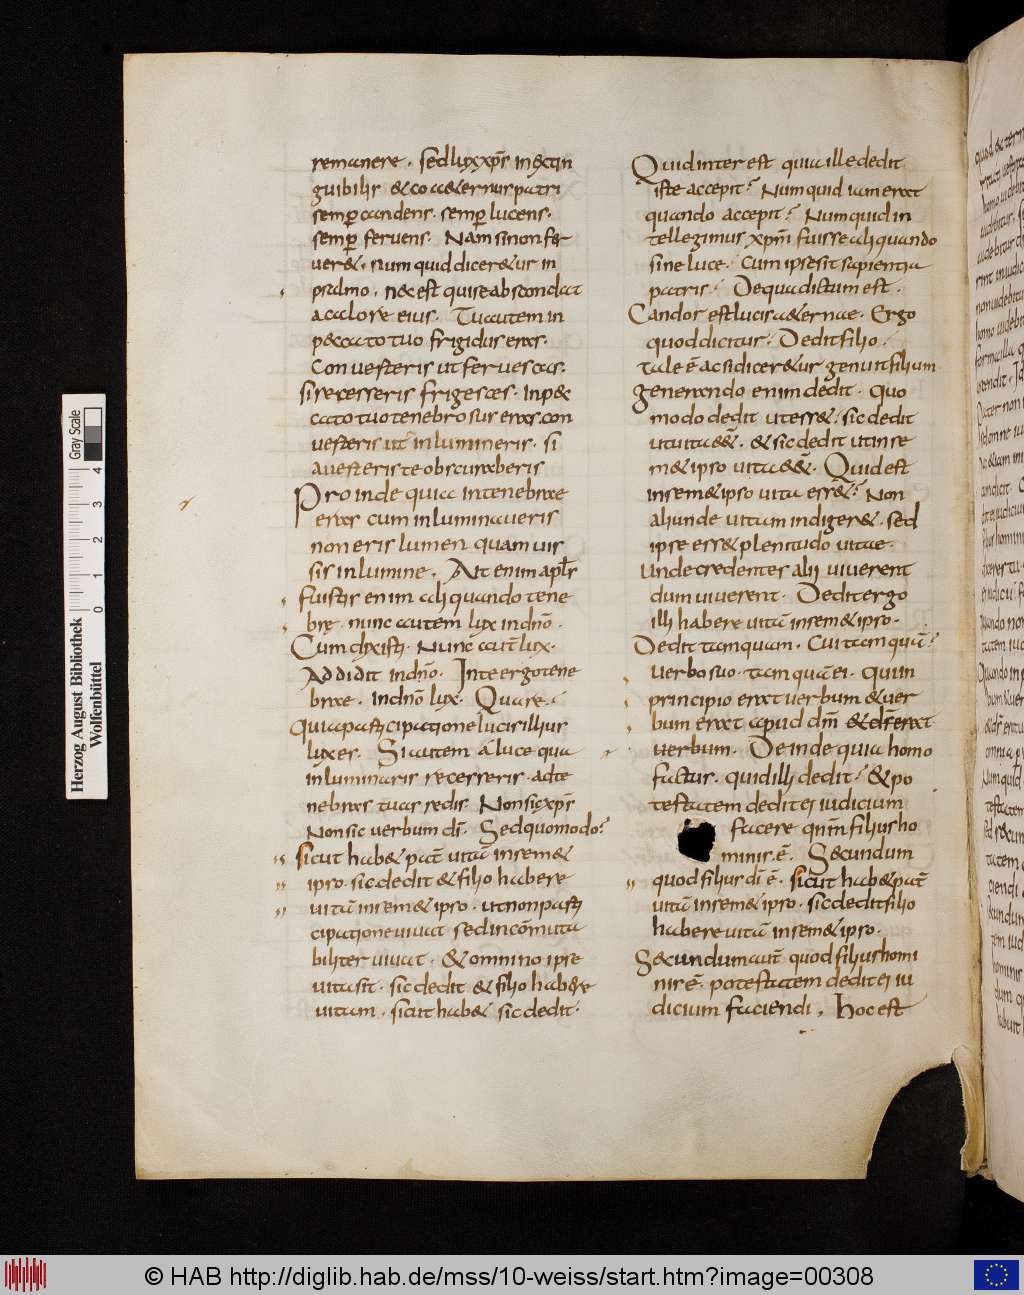 remanere. sed lux xp̄s inextin
guibilis & coa&ernus patri
semp candens. semp lucens.
semp fervens. Nam si non fer
ver&. num quid dicer&ur in
psalmo. nec est qui se abscondat
a calore eius. Tu autem in
peccato tuo frigidus eras.
Converteris ut fervescas.
si recesseris frigesces. In pec
cato tuo tenebrosus eras. con
verteris ut inlumineris. si
averteris te obscuraberis
Proinde quia in tenebrae
eras cum inluminaveris
non eris lumen quamvis
sis in lumine. Ait enim apl's
fuistis enim aliquando tene
brę. nunc autem lux in dn̄o.
Cum dixisset. Nunc aut̄ lux.
Addidit in dn̄o. In te ergo tene
brae. In dn̄o lux. Quare.
Quia participatione lucis illius
lux es. Si autem a luce qua
inluminaris recesseris. ad te
nebras tuas redis. Non sic xp̄s
Non sic verbum dī. Sed quomodo?
sicut hab& pat̄ vitā in sem&
ipso. sic dedit & filio habere
vitā in sem&ipso. ut non parti
cipatione vivat sed incōmuta
biliter vivat. & omnino ipse
vita sit. sic dedit & filio habere
vitam. sicut hab& sic dedit.
Quid interest quia ille dedit
iste accepit? Numquid iam erat
quando accepit? Numquid in
tellegimus xpm̄ fuisse aliquando
sine luce. Cum ipse sit sapientia
patris. De qua dictum est.
Candor est lucis a&ernae. Ergo
quod dicitur. Dedit filio.
tale ē ac si dicer&ur genuit filium
generando enim dedit. quo
modo dedit ut ess&. sic dedit
ut vita ess&. & sic dedit ut in se
m&ipso vita ess&. Quid est
in sem&ipso vita ess&? Non
aliunde vitam indiger&. sed
ipse ess& plenitudo vitae.
Unde credentes alii viverent
dum viverent. Dedit ergo
illi habere vitā in sem&ipso.
Dedit tamquam. Cui tamquā?
verbo suo. tamquā ei. qui in
principio erat verbum & ver
bum erat apud dm̄ & ds̄ erat
verbum. Deinde quia homo
factus. quid illi dedit? & po
testatem dedit ei iudicium
facere qnm̄ filius ho
minis ē. Secundum
quod filius dī ē. sicut hab& pat̄
vitā in sem&ipso. sic dedit filio
habere vitā in sem&ipso.
Secundum aut̄ quod filius homi
nis ē. potestatem dedit ei iu
dicium faciendi. Hoc est
Herzog August Bibliothek
Wolfenbüttel
Gray Scale
0 1 2 3 4
© HAB http://diglib.hab.de/mss/10-weiss/start.htm?image=00308